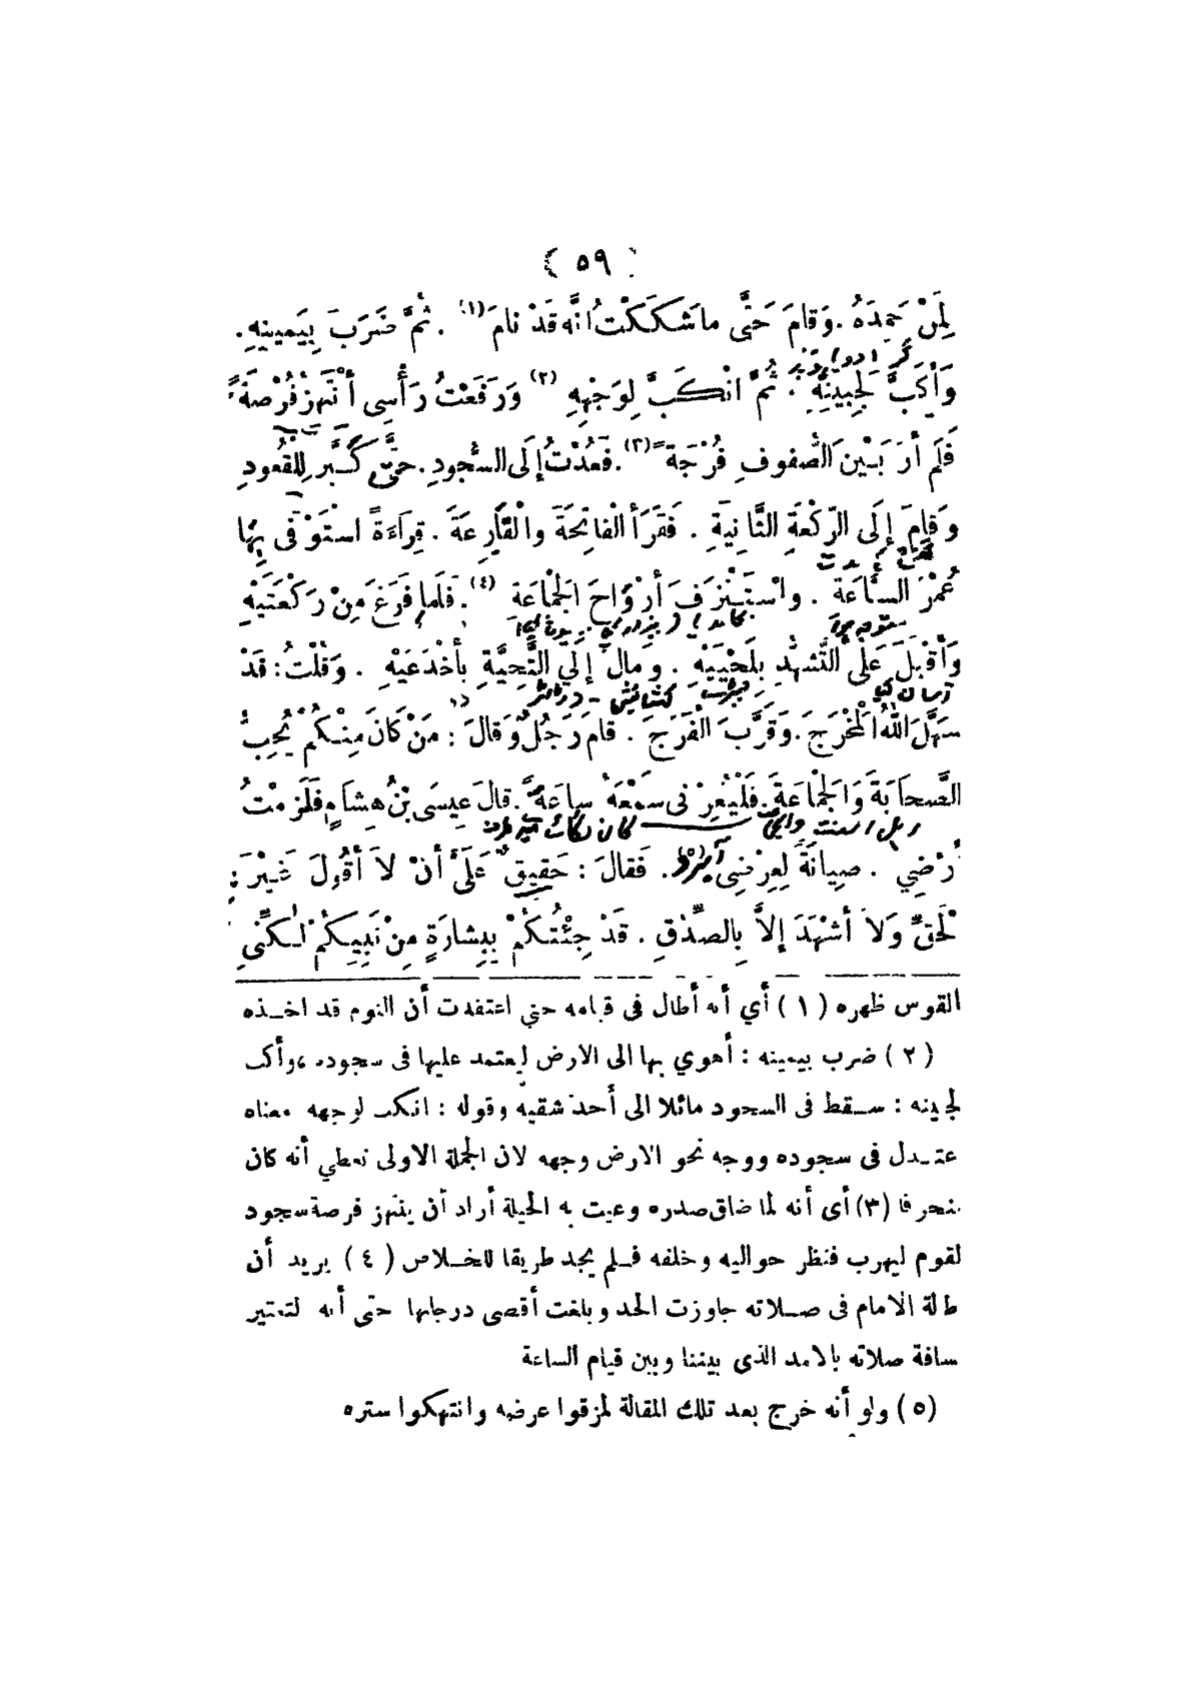 ( ٥٩ )
لِمَنْ حَمِدَهُ . وَقامَ حَتَّى ما شَكَكْتُ انَّه قَدْ نامَ (١) . ثُمَّ ضَرَبَ بِيَمِينِهِ .
وَأَكَبَّ لِجَبِينِهِ . ثُمَّ انْكَبَّ لِوَجْهِهِ (٢) وَرَفَعْتُ رَأْسِى أَنْتَهِزُ فُرْصَةً
فَلَم أرَ بَيْنَ الصُّفوفِ فُرْجَةً (٣) . فَعُدْتُ إلَى السُّجُودِ . حتَّى كَبَّر لِلْقُعودِ
وَقامَ إلَى الرّكْعَةِ الثَّانِيَةِ . فَقَرَأ الْفاتِحَةَ والْقارِعَةَ . قِرَاءَةً استَوْفَى بِهَا
عُمْرَ السَّاعَةَ . واسْتَنْزَفَ أرْوَاحَ الجَمَاعَةِ (٤) . فَلَما فَرَغَ مِنْ رَكْعَتَيْهِ
وَأَقْبَلَ عَلَى التَّشهُّدِ بِلَحْيَيْهِ . وَمالَ إلَي التَّحِيَّةِ بأَخْدَعَيْهِ . وَقُلْتُ : قَدْ
سَهَّلَ اللهُ الْمَخْرَجَ . وَقَرَّبَ الفَرَجَ . قامَ رَجُلٌ وَقالَ : مَنْ كَانَ مِنْكُمْ يُحِبُّ
الصَّحابَةَ وَالجَمَاعَةَ . فَلْيُعِرْنى سَمْعَهُ ساعَةً . قالَ عِيسَى بْنُ هِشَامٍ فَلَزِمْتُ
أَرْضِي . صِيانَةً لِعِرْضِى . فَقالَ : حَقِيقٌ عَلَىَّ أنْ لاَ أقُولَ غَيْرَ
لْحَقِّ وَلاَ أشْهَدَ إلاَّ بِالصِّدْقِ . قَدْ جِئْتُكُمْ بِبِشارَةٍ مِنْ نَبِيِّكُمْ لكنِّى
القوس ظهره (١) أي أنه أطال فى قيامه حتي اعتقدت أن النوم قد اخـذه
(٢) ضرب بيمينه : أهوي بها الى الارض ليعتمد عليها فى سجوده ، وأكب
لجبينه : سـقط فى السجود مائلا الى أحد شقيه وقوله : انكب لوجهه معناه
عتـدل فى سجوده ووجه نحو الارض وجهه لان الجملة الاولى تعطي أنه كان
نحرفا (٣) أى أنه لما ضاق صدره وعيت به الحيلة أراد أن ينتهز فرصة سجود
لقوم ليهرب فنظر حواليه وخلفه فـلم يجد طريقا للخـلاص (٤) يريد أن
طالة الامام فى صـلاته جاوزت الحد وبلغت أقصى درجاتها حتى أنه لتعتبر
سافة صلاته بالامد الذى بيننا وبين قيام الساعة
(٥) ولو أنه خرج بعد تلك المقالة لمزقوا عرضه وانتهكوا ستره